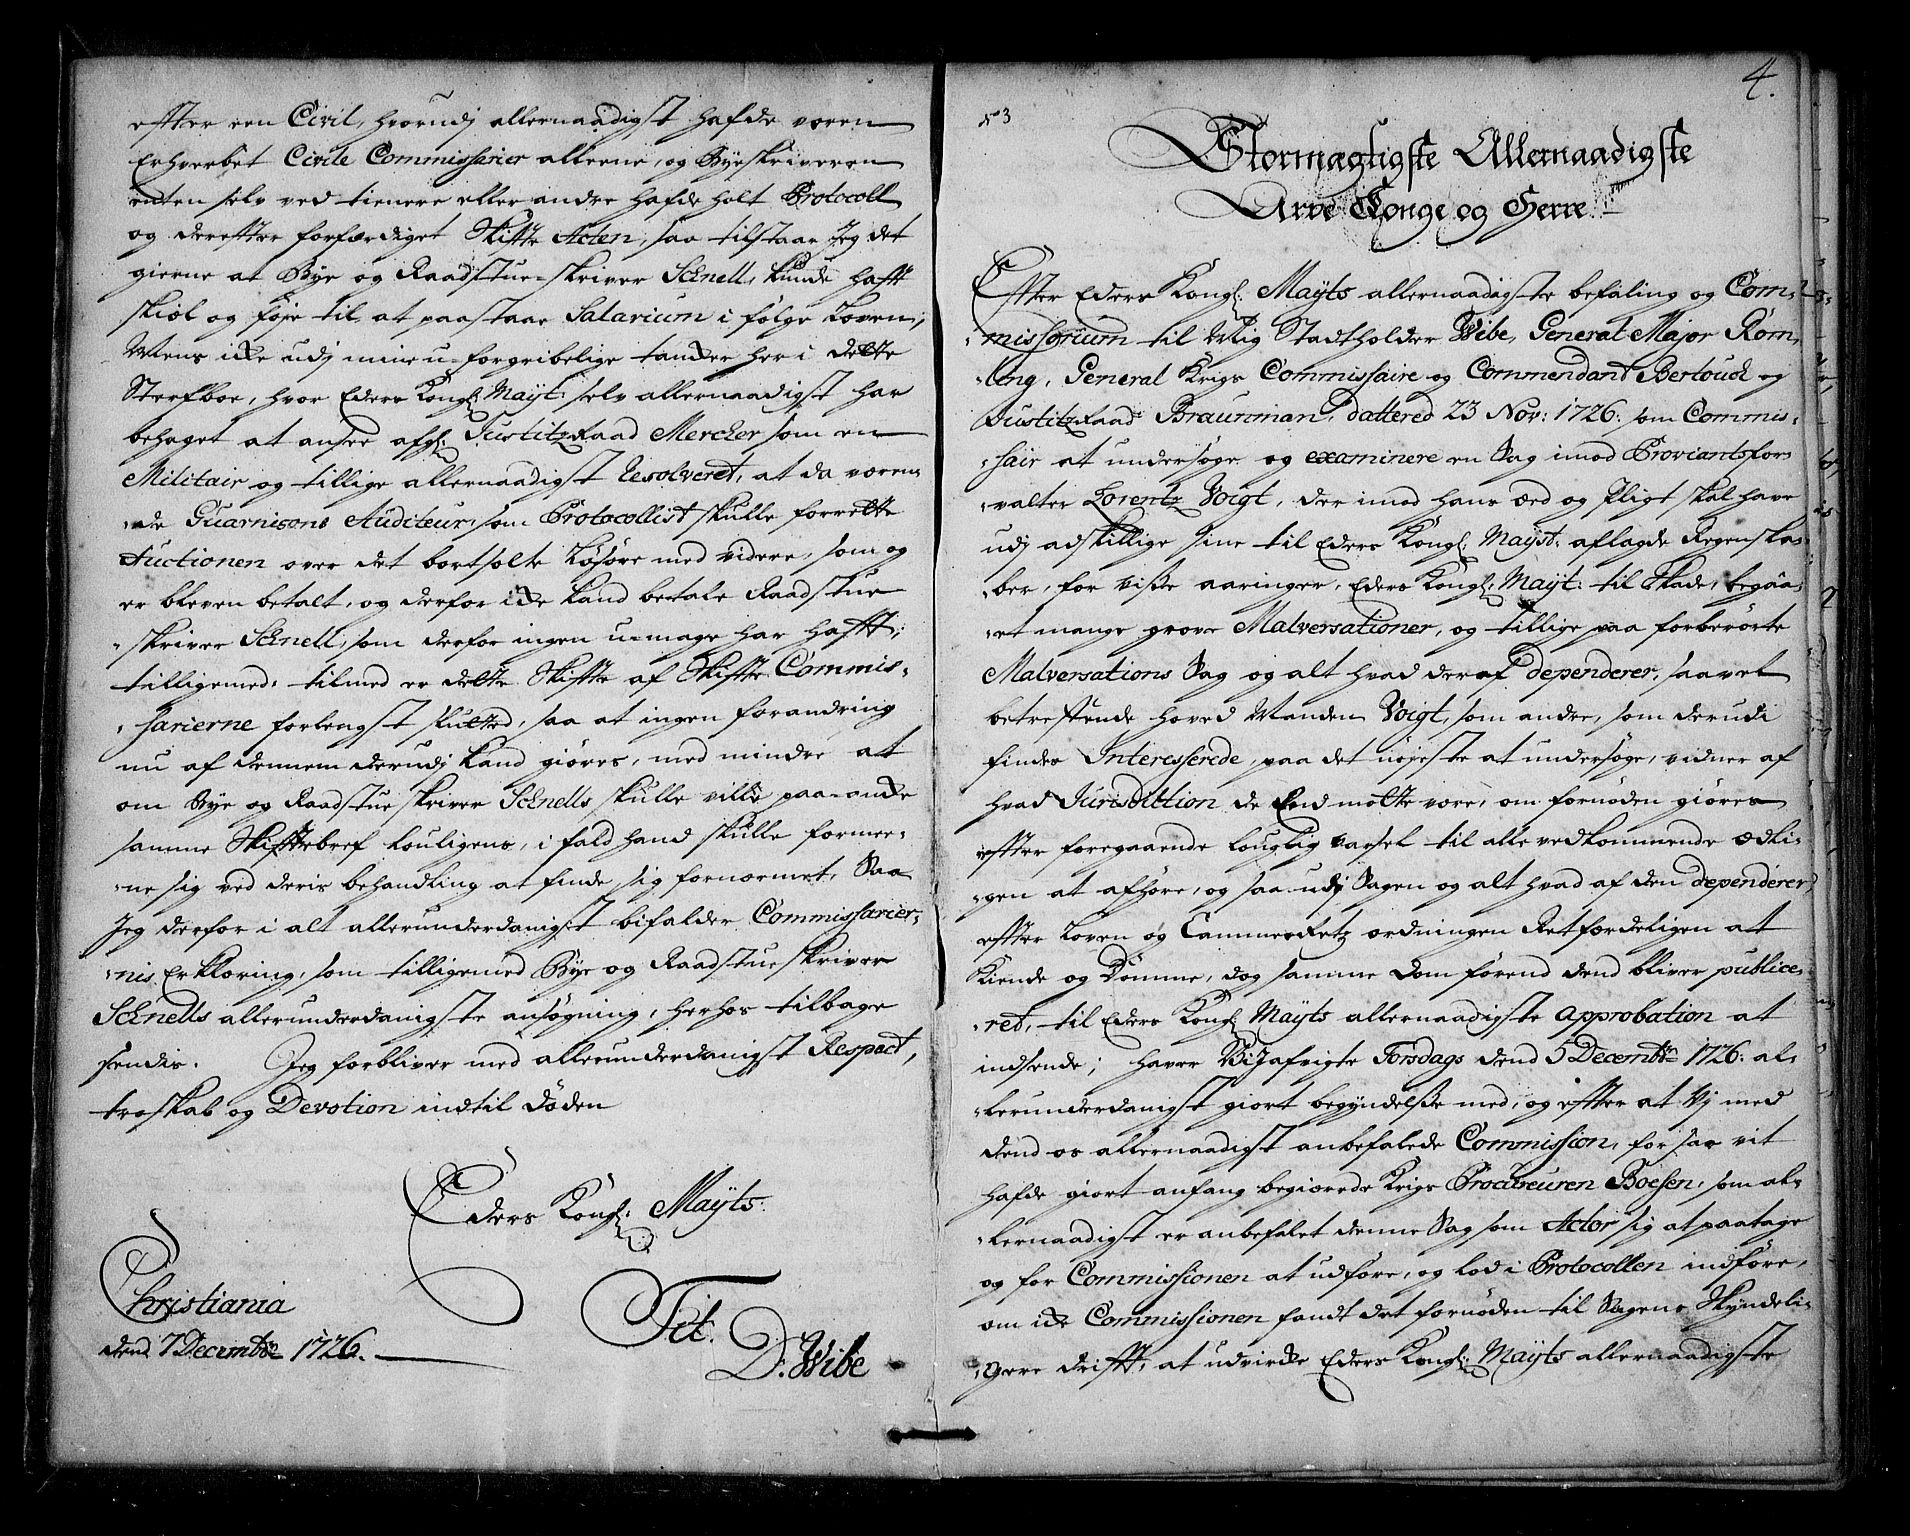 effter een Civil, hvorudj allernaadigst hafde været
Erhverbet Civile Commissarier alleene, og Byeskriveren
enten selv ved tienere eller andre hafde holt Protocoll
og dereffter forfærdiget Skiffte Acten, saa tilstaar Jeg det
gierne at Bye og Raadstue-skriver Schnell, kunde hafft
skiøl og føje til at paastaae Salarium i følge Loven;
Mens icke udj mine u-forgribelige tancker her i dette
Sterfboe, hvor Eders Kongl: Mayt: selv allernaadigst har
behaget at ansee afgl: JustitzRaad Mercker som en
Militair og tillige allernaadigst Resolveret, at da væren-
de Guarnisons Auditeur, som Protocollist skulle forrette
Auctionen over det bortsolte Løsøre med videre, som og
er bleven betalt, og derfor icke kand betale Raadstue
skriver Schnell, som derfor ingen u-mage har hafft;
tilligemed: tilmed er dette Skiffte af Skiffte Commis-
sarierne forlengst sluttet, saa at ingen forandring
nu af dennem derudj kand giøres, med mindre at
om Bye og Raadstueskriver Schnells skulle ville paa-ancke
samme Skifftebref louligens, i fald hand skulle formee-
ne sig ved deris behandling at finde sig fornermet. Saa
Jeg derfor i alt allerunderdanigst bifalder Commissarier-
nis Erklæring, som tilligemed Bye og Raadstueskriver
Schnells allerunderdanigste ansøgning, herhos tilbage
sendis. Jeg forbliver med allerunderdanigst Respect,
troskab og Devotion indtil døden
Eders Kongl: Mayts.
Christiania
dend 7 Decembr: 1726.
Tit.
D: Wibe
4.
N3
Stormægtigste Allernaadigste
Arve Konge og Herre
Effter Eders Kongl: Mayts allernaadigste befaling og Com-
missorium til Mig Stadtholder Wibe, General Major Røm-
ling, General Krigs Commissaire og Commendant Bertouch og
JustitzRaad Braunman, dattered 23 Nov: 1726: som Commis-
sair at undersøge og examinere en Sag imod Proviantsfor-
valter Lorentz Voigt, der imod hans æed og Pligt skal have
udj adskillige sine til Eders Kongl: Mayst: aflagde Regenska-
ber, for visse aaringer, Eders Kongl: Mayt: til Skade, begaa-
et mange grove Malversationer, og tillige paa forberørte
Malversations Sag og alt hvad deraf dependerer, saavel
betreffende hoved Manden Voigt, som andre, som derudi
findes Interesserede, paa det nøjeste at undersøge, vidner af
hvad Jurisdiction de end motte være, om fornøden giøres
effter foregaaende louglig varsel til alle vedkommende ædli-
gen at afhøre, og saa udj Sagen og alt hvad af den dependerer
effter Loven og CammerRetz ordningen Retfærdeligen at
Kiende og Dømme, dog samme Dom førend dend bliver publice-
ret, til Eders Kongl: Mayts allernaadigste approbation at
indsende; haver Vi Jafvigte Torsdags dend 5 Decembr: 1726: al-
lerunderdanigst giort begyndelse med, og effter at Vj med
dend os allernaadigst anbefalede Commission, for saa vit
hafde giort anfang begiærede Krigs Procureuren Boesen, som al-
lernaadigst er anbefalet denne Sag som Actor sig at paatage
og for Commissionen at udføre, og lod i Protocollen indføre,
om icke Commissionen fandt det fornøden til Sagens Skyndeli-
gere drifft, at udvircke Eders Kongl: Mayts allernaadigste